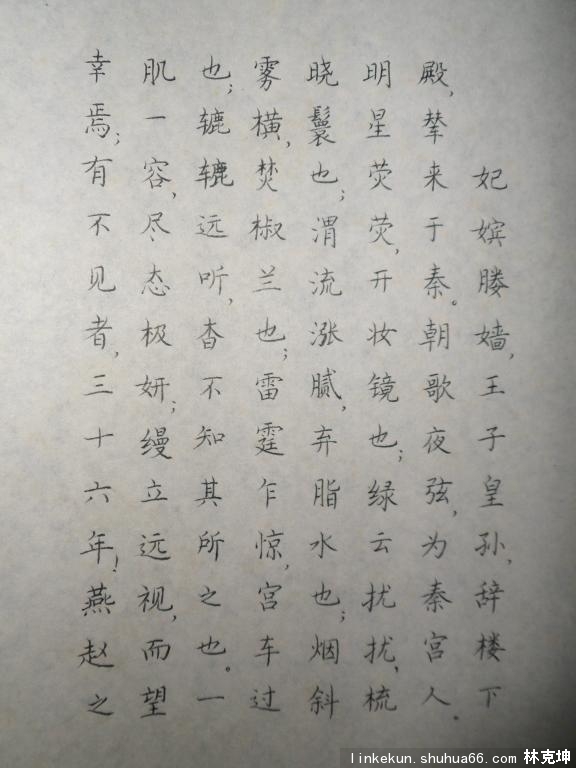 妃嫔媵嫱,王子皇孙,辞楼下
殿,辇来于秦。朝歌夜弦,为秦宫人。
明星荧荧,开妆镜也;绿云扰扰,梳
晓鬟也;渭流涨腻,弃脂水也;烟斜
雾横,焚椒兰也;雷霆乍惊,宫车过
也;辘辘远听,杳不知其所之也。一
肌一容,尽态极妍;缦立远视,而望
幸焉;有不见者,三十六年!燕赵之
linkekun.shuhua66.com 林克坤